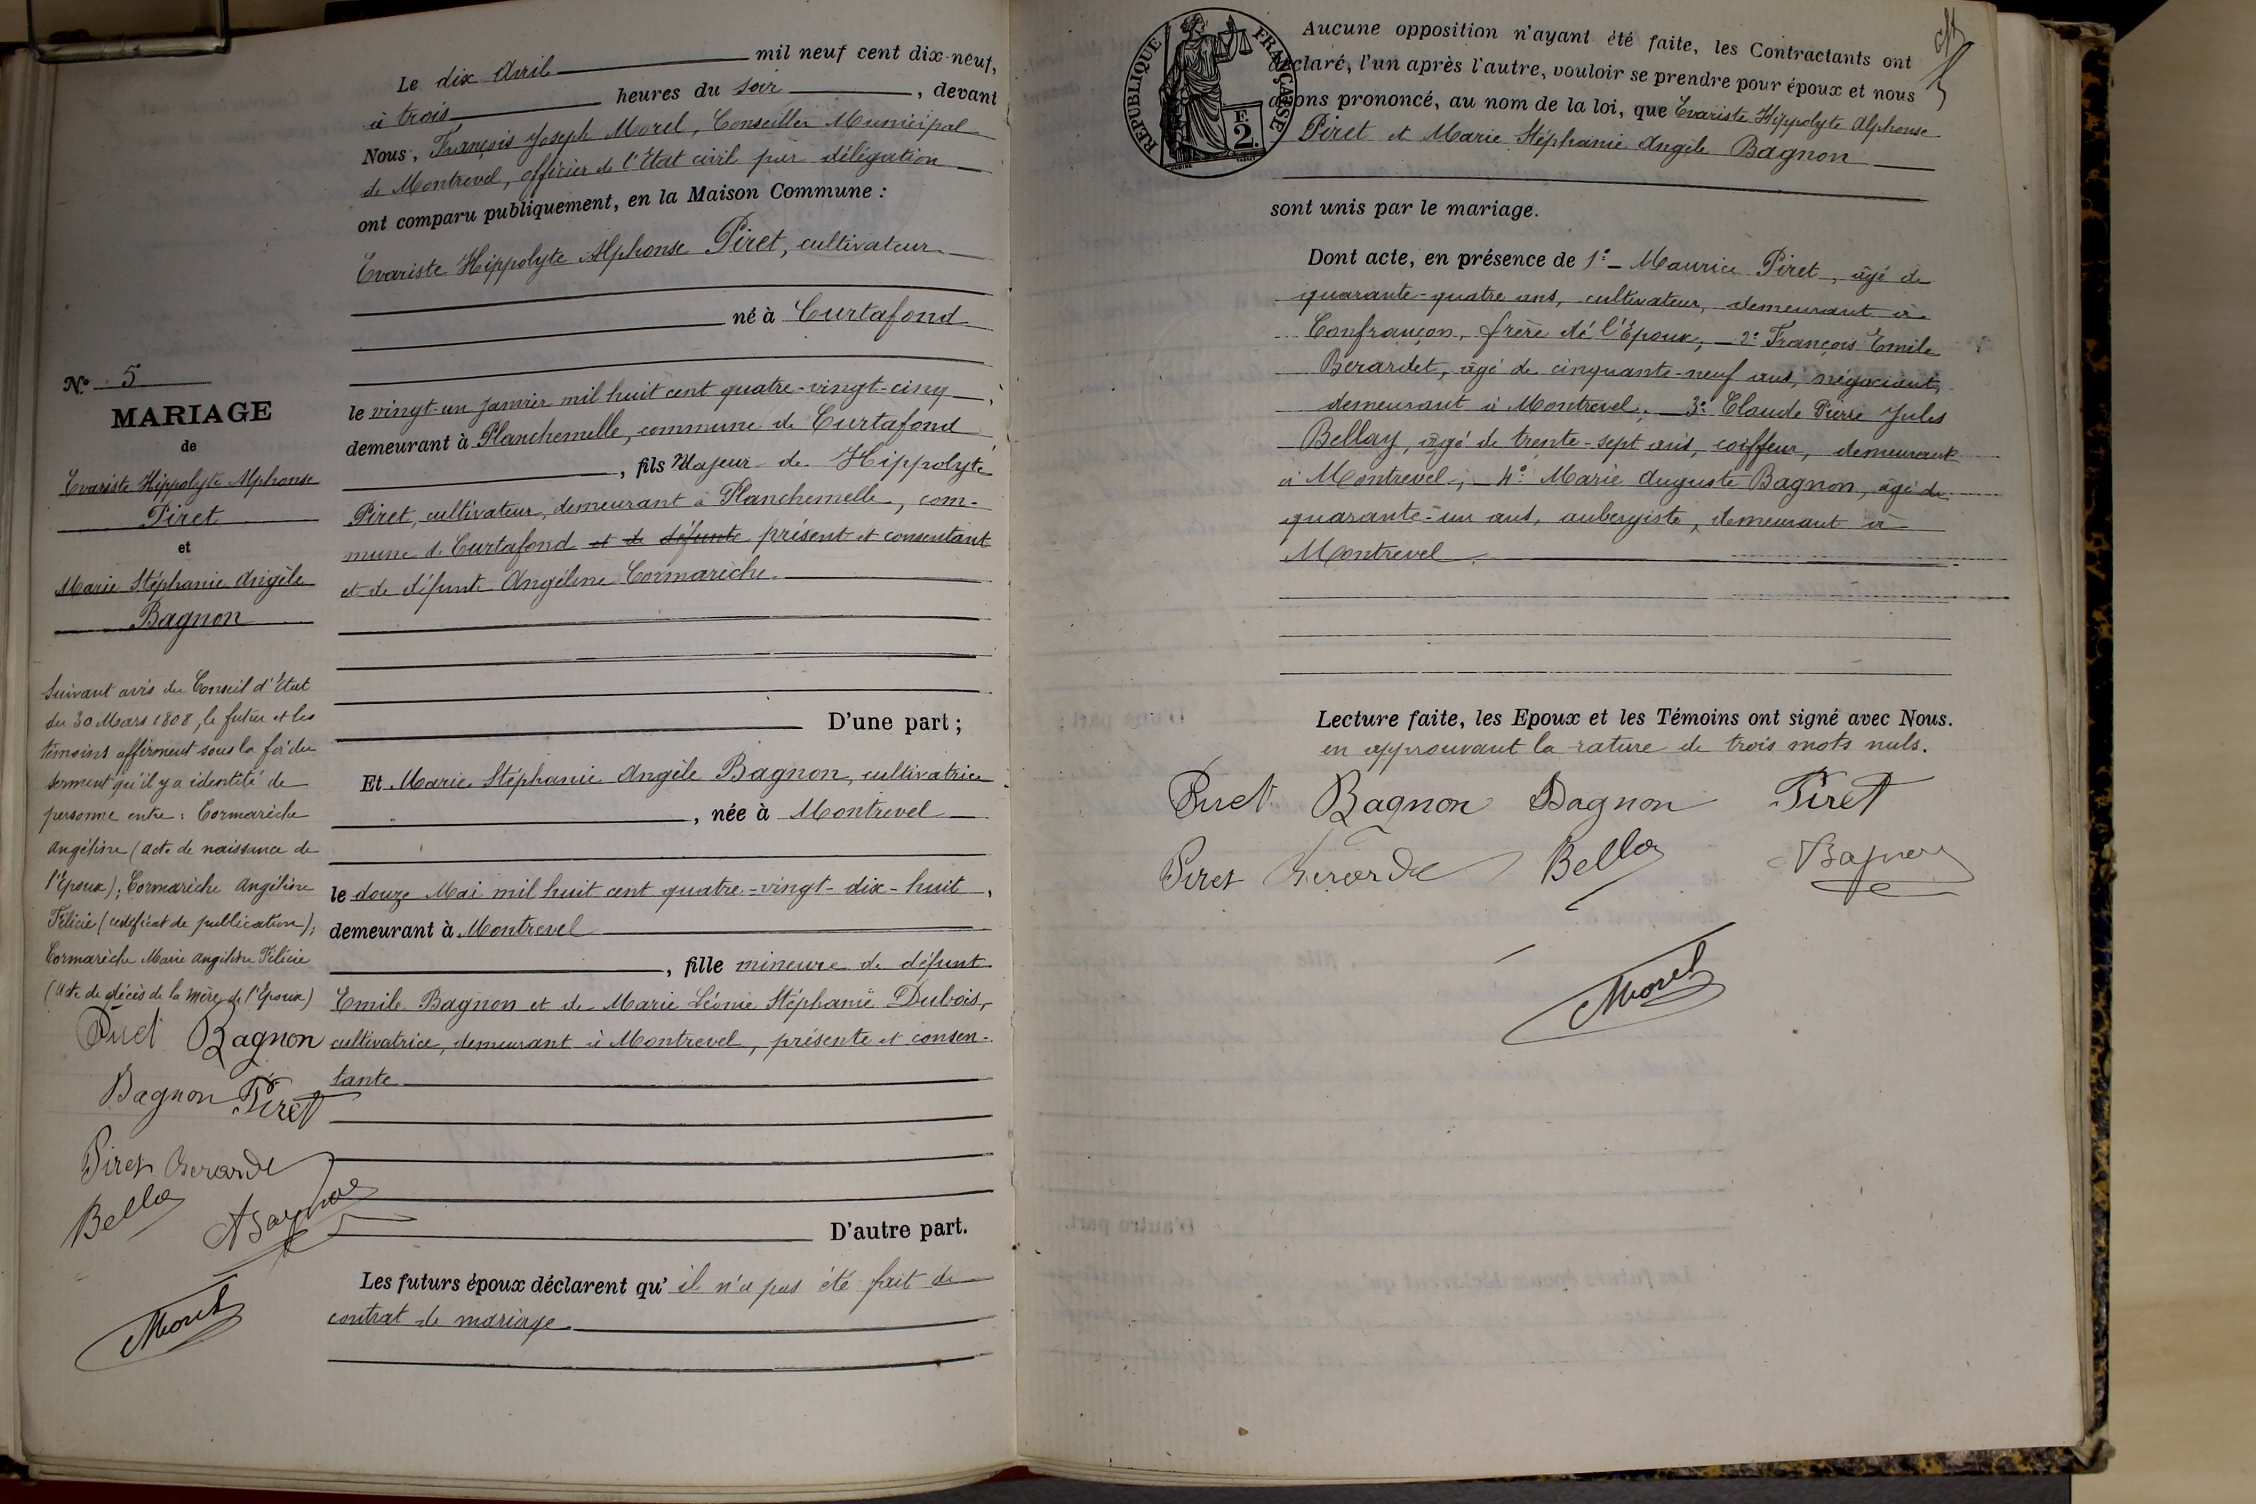 Le dix Avril mil neuf cent dix-neuf,
à trois heures du soir, devant
Nous, François Joseph Morel, Conseiller Municipal
de Montrevel, officier de l'Etat civil par délégation
ont comparu publiquement, en la Maison Commune :
Evariste Hippolyte Alphonse Piret, cultivateur
né à Curtafond
le vingt-un Janvier mil huit cent quatre-vingt-cinq,
demeurant à Planchemelle, commune de Curtafond
, fils Majeur de Hippolyte
Piret, cultivateur, demeurant à Planchemelle, com-
mune de Curtafond et de défunte présent et consentant
et de défunte Angéline Cormarèche.
D'une part ;
Et Marie Stéphanie Angèle Bagnon, cultivatrice
, née à Montrevel
le douze Mai mil huit cent quatre-vingt-dix-huit,
demeurant à Montrevel
, fille mineure de défunt
Emile Bagnon et de Marie Léonie Stéphanie Dubois,
cultivatrice, demeurant à Montrevel, présente et consen-
tante
D'autre part.
Les futurs époux déclarent qu' il n'a pas été fait de
contrat de mariage
N° 5
MARIAGE
de
Evariste Hippolyte Alphonse
Piret
et
Marie Stéphanie Angèle
Bagnon
Suivant avis du Conseil d'Etat
du 30 Mars 1808, le futur et les
témoins affirment sous la foi du
serment qu'il y a identité de
personne entre : Cormarèche
Angéline (acte de naissance de
l'Epoux) ; Cormarèche Angéline
Félicie (certificat de publication) ;
Cormarèche Marie Angéline Félicie
(acte de décès de la mère de l'Epoux)
Piret Bagnon
Bagnon Piret
Piret Berardet
Bellay Bagnon
Morel
RÉPUBLIQUE FRANÇAISE
E.
2.
Aucune opposition n'ayant été faite, les Contractants ont
déclaré, l'un après l'autre, vouloir se prendre pour époux et nous
avons prononcé, au nom de la loi, que Evariste Hippolyte Alphonse
Piret et Marie Stéphanie Angèle Bagnon
sont unis par le mariage.
Dont acte, en présence de 1° - Maurice Piret, âgé de
quarante-quatre ans, cultivateur, demeurant à
Confrançon, frère de l'Epoux ; - 2° François Emile
Berardet, âgé de cinquante-neuf ans, négociant,
demeurant à Montrevel ; - 3° Claude Pierre Jules
Bellay, âgé de trente-sept ans, coiffeur, demeurant
à Montrevel ; 4° Marie Auguste Bagnon, âgé de
quarante-un ans, aubergiste, demeurant à
Montrevel.
Lecture faite, les Epoux et les Témoins ont signé avec Nous.
en approuvant la rature de trois mots nuls.
Piret Bagnon Bagnon Piret
Piret Berardet Bellay Bagnon
Morel